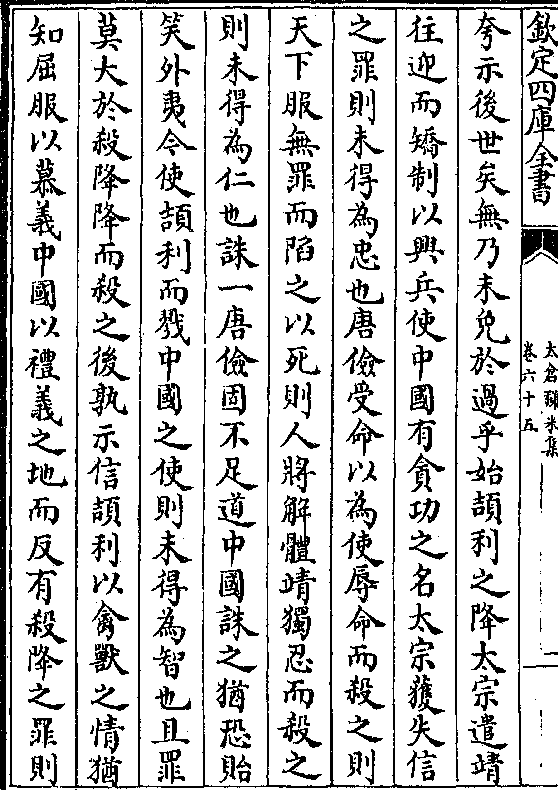 欽定四庫全書
太倉稊米集
卷六十五
一
夸示後世矣無乃未免於過乎始頡利之降太宗遣靖
往迎而矯制以興兵使中國有貪功之名太宗獲失信
之罪則未得為忠也唐儉受命以為使辱命而殺之則
天下服無罪而陷之以死則人將解體靖獨忍而殺之
則未得為仁也誅一唐儉固不足道中國誅之猶恐貽
笑外夷令使頡利而戮中國之使則未得為智也且罪
莫大於殺降降而殺之後孰示信頡利以禽獸之情猶
知屈服以慕義中國以禮義之地而反有殺降之罪則